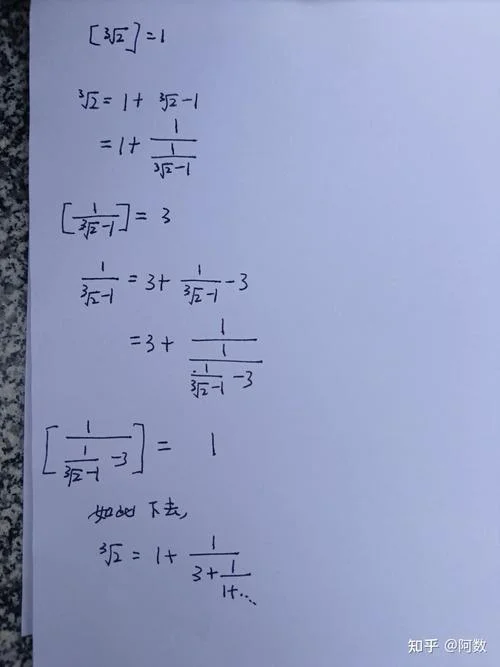 [∛2]=1
∛2 = 1 + ∛2-1
= 1 + 1/(1/(∛2-1))
[1/(∛2-1)] = 3
1/(∛2-1) = 3 + 1/(∛2-1) - 3
= 3 + 1/(1/(1/(∛2-1) - 3))
[1/(1/(∛2-1) - 3)] = 1
如此下去,
∛2 = 1 + 1/(3 + 1/(1+⋯
知乎 @阿数